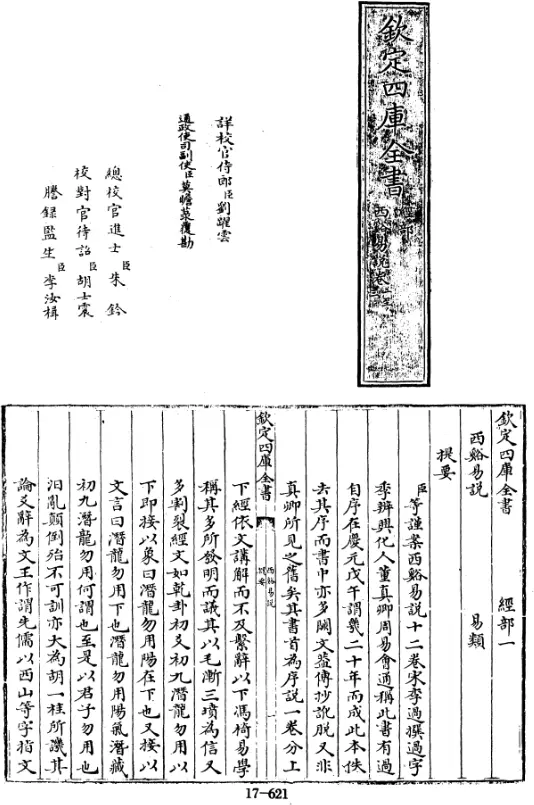 欽定四庫全書
經部
西谿易說卷
詳校官侍郎臣劉躍雲
通政使司副使臣莫瞻菉覆勘
總校官進士臣朱鈐
校對官待詔臣胡士震
謄錄監生臣李汝楫
欽定四庫全書 經部一
西谿易說 易類
提要
臣等謹案西谿易說十二卷宋李過撰過字
季辨興化人董真卿周易會通稱此書有過
自序在慶元戊午謂幾二十年而成此本佚
去其序而書中亦多闕文蓋傳抄訛脫又非
真卿所見之舊矣其書首為序說一卷分上
欽定四庫全書
西谿易說
提要
下經依文講解而不及繫辭以下馮椅易學
稱其多所發明而議其以毛漸三墳為信又
多割裂經文如乾卦初爻初九潛龍勿用以
下即接以象曰潛龍勿用陽在下也又接以
文言曰潛龍勿用下也潛龍勿用陽氣潛藏
初九潛龍勿用何謂也至是以君子勿用也
汨亂顛倒殆不可訓亦大為胡一桂所譏其
論爻辭為文王作謂先儒以西山等字指文
17-621